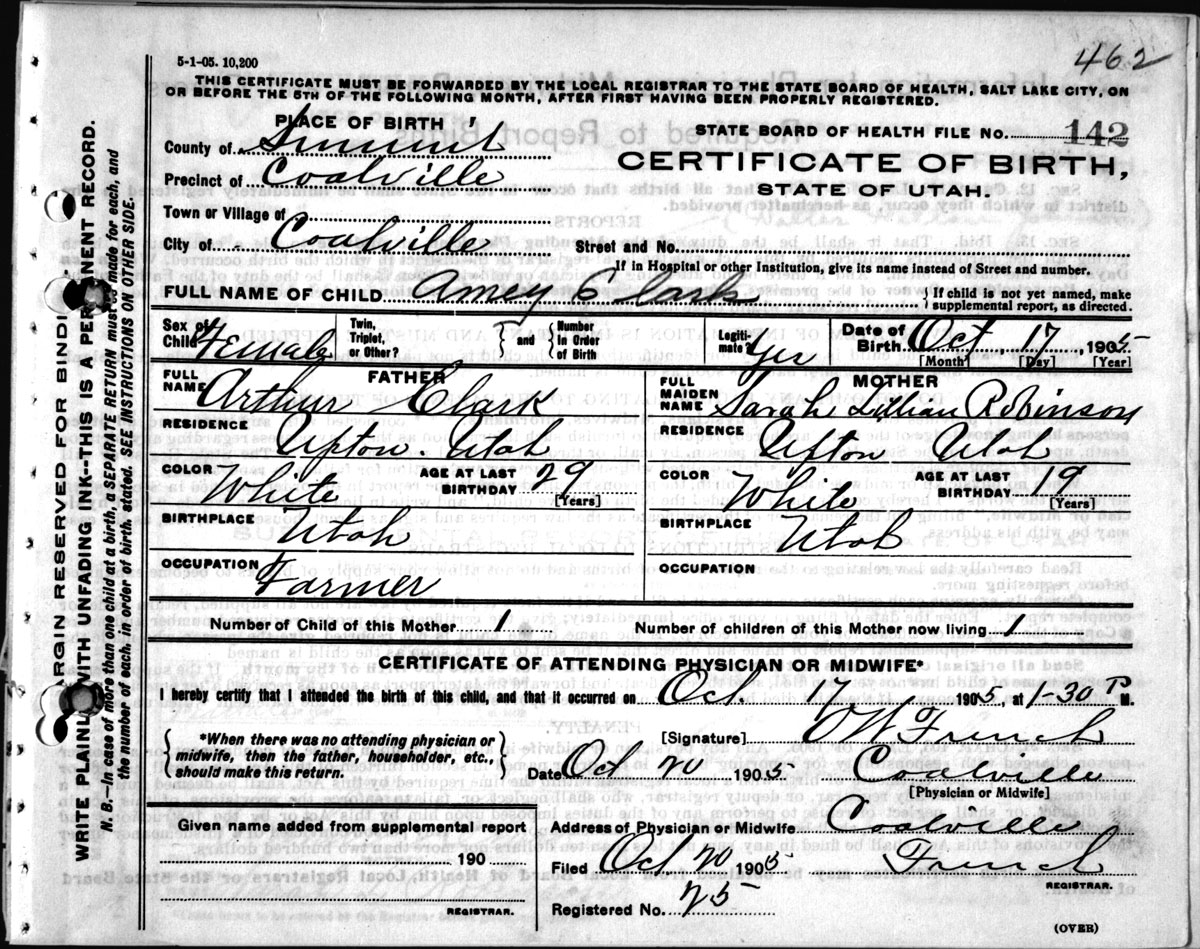 462
5-1-05. 10,200
THIS CERTIFICATE MUST BE FORWARDED BY THE LOCAL REGISTRAR TO THE STATE BOARD OF HEALTH, SALT LAKE CITY, ON
OR BEFORE THE 5TH OF THE FOLLOWING MONTH, AFTER FIRST HAVING BEEN PROPERLY REGISTERED.
PLACE OF BIRTH
STATE BOARD OF HEALTH FILE NO. 142
County of Summit
CERTIFICATE OF BIRTH,
Precinct of Coalville
STATE OF UTAH.
Town or Village of
City of Coalville Street and No.
If in Hospital or other Institution, give its name instead of Street and number.
FULL NAME OF CHILD Amey Clark { If child is not yet named, make supplemental report, as directed.
Sex of Child Female Twin, Triplet, or Other? { and { Number in Order of Birth Legitimate? Yes Date of Birth Oct 17 1905
[Month] [Day] [Year]
FATHER
FULL NAME Arthur Clark
RESIDENCE Upton. Utah
COLOR White AGE AT LAST BIRTHDAY 29 [Years]
BIRTHPLACE Utah
OCCUPATION Farmer
MOTHER
FULL MAIDEN NAME Sarah Lillian Robinson
RESIDENCE Upton Utah
COLOR White AGE AT LAST BIRTHDAY 19 [Years]
BIRTHPLACE Utah
OCCUPATION
Number of Child of this Mother 1 Number of children of this Mother now living 1
CERTIFICATE OF ATTENDING PHYSICIAN OR MIDWIFE*
I hereby certify that I attended the birth of this child, and that it occurred on Oct. 17 1905, at 1-30 P M.
{ *When there was no attending physician or midwife, then the father, householder, etc., should make this return. }
[Signature] O W French
Date Oct 20 1905 Coalville
[Physician or Midwife]
Given name added from supplemental report
190
REGISTRAR.
Address of Physician or Midwife Coalville
Filed Oct 20 1905 French
REGISTRAR.
Registered No. 25
(OVER)
MARGIN RESERVED FOR BINDING
WRITE PLAINLY WITH UNFADING INK--THIS IS A PERMANENT RECORD.
N. B.—In case of more than one child at a birth, a SEPARATE RETURN must be made for each, and
the number of each, in order of birth, stated. SEE INSTRUCTIONS ON OTHER SIDE.